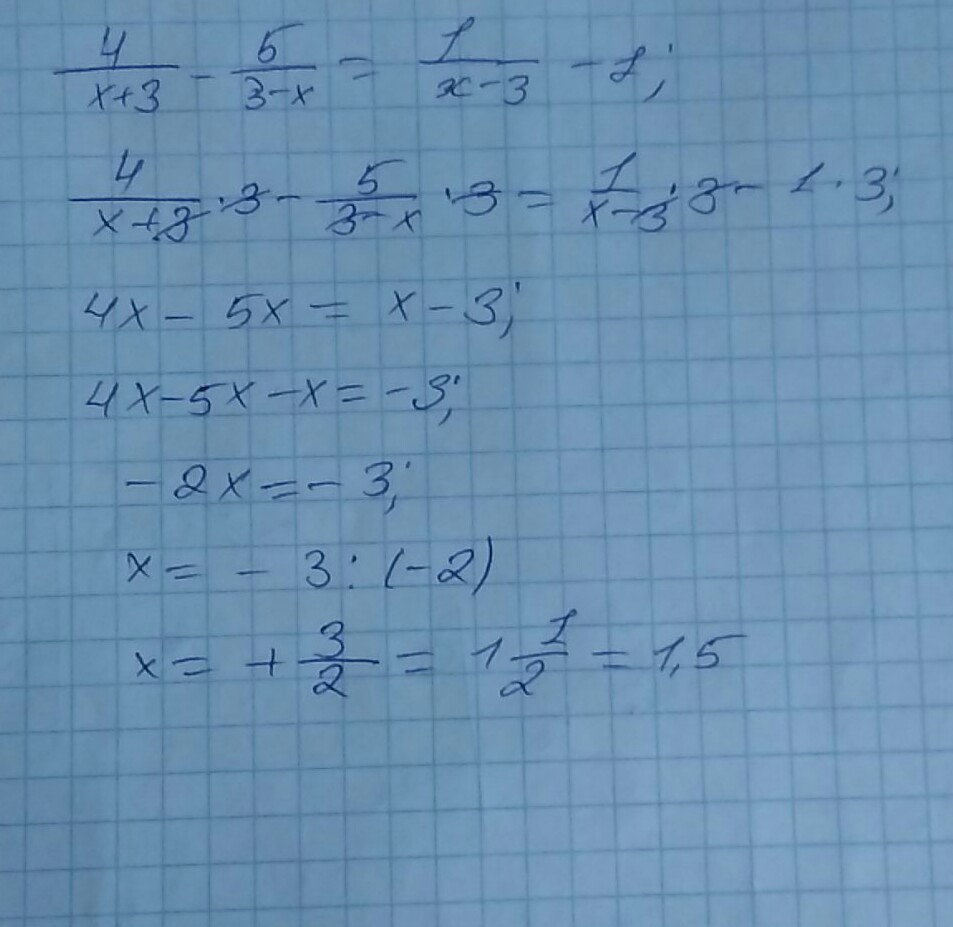 4/(x+3) - 5/(3-x) = 1/(x-3) - 1;
4/(x+3) · 3 - 5/(3-x) · 3 = 1/(x-3) · 3 - 1 · 3;
4x - 5x = x - 3;
4x - 5x - x = -3;
- 2x = - 3;
x = - 3 : (-2)
x = + 3/2 = 1 1/2 = 1,5